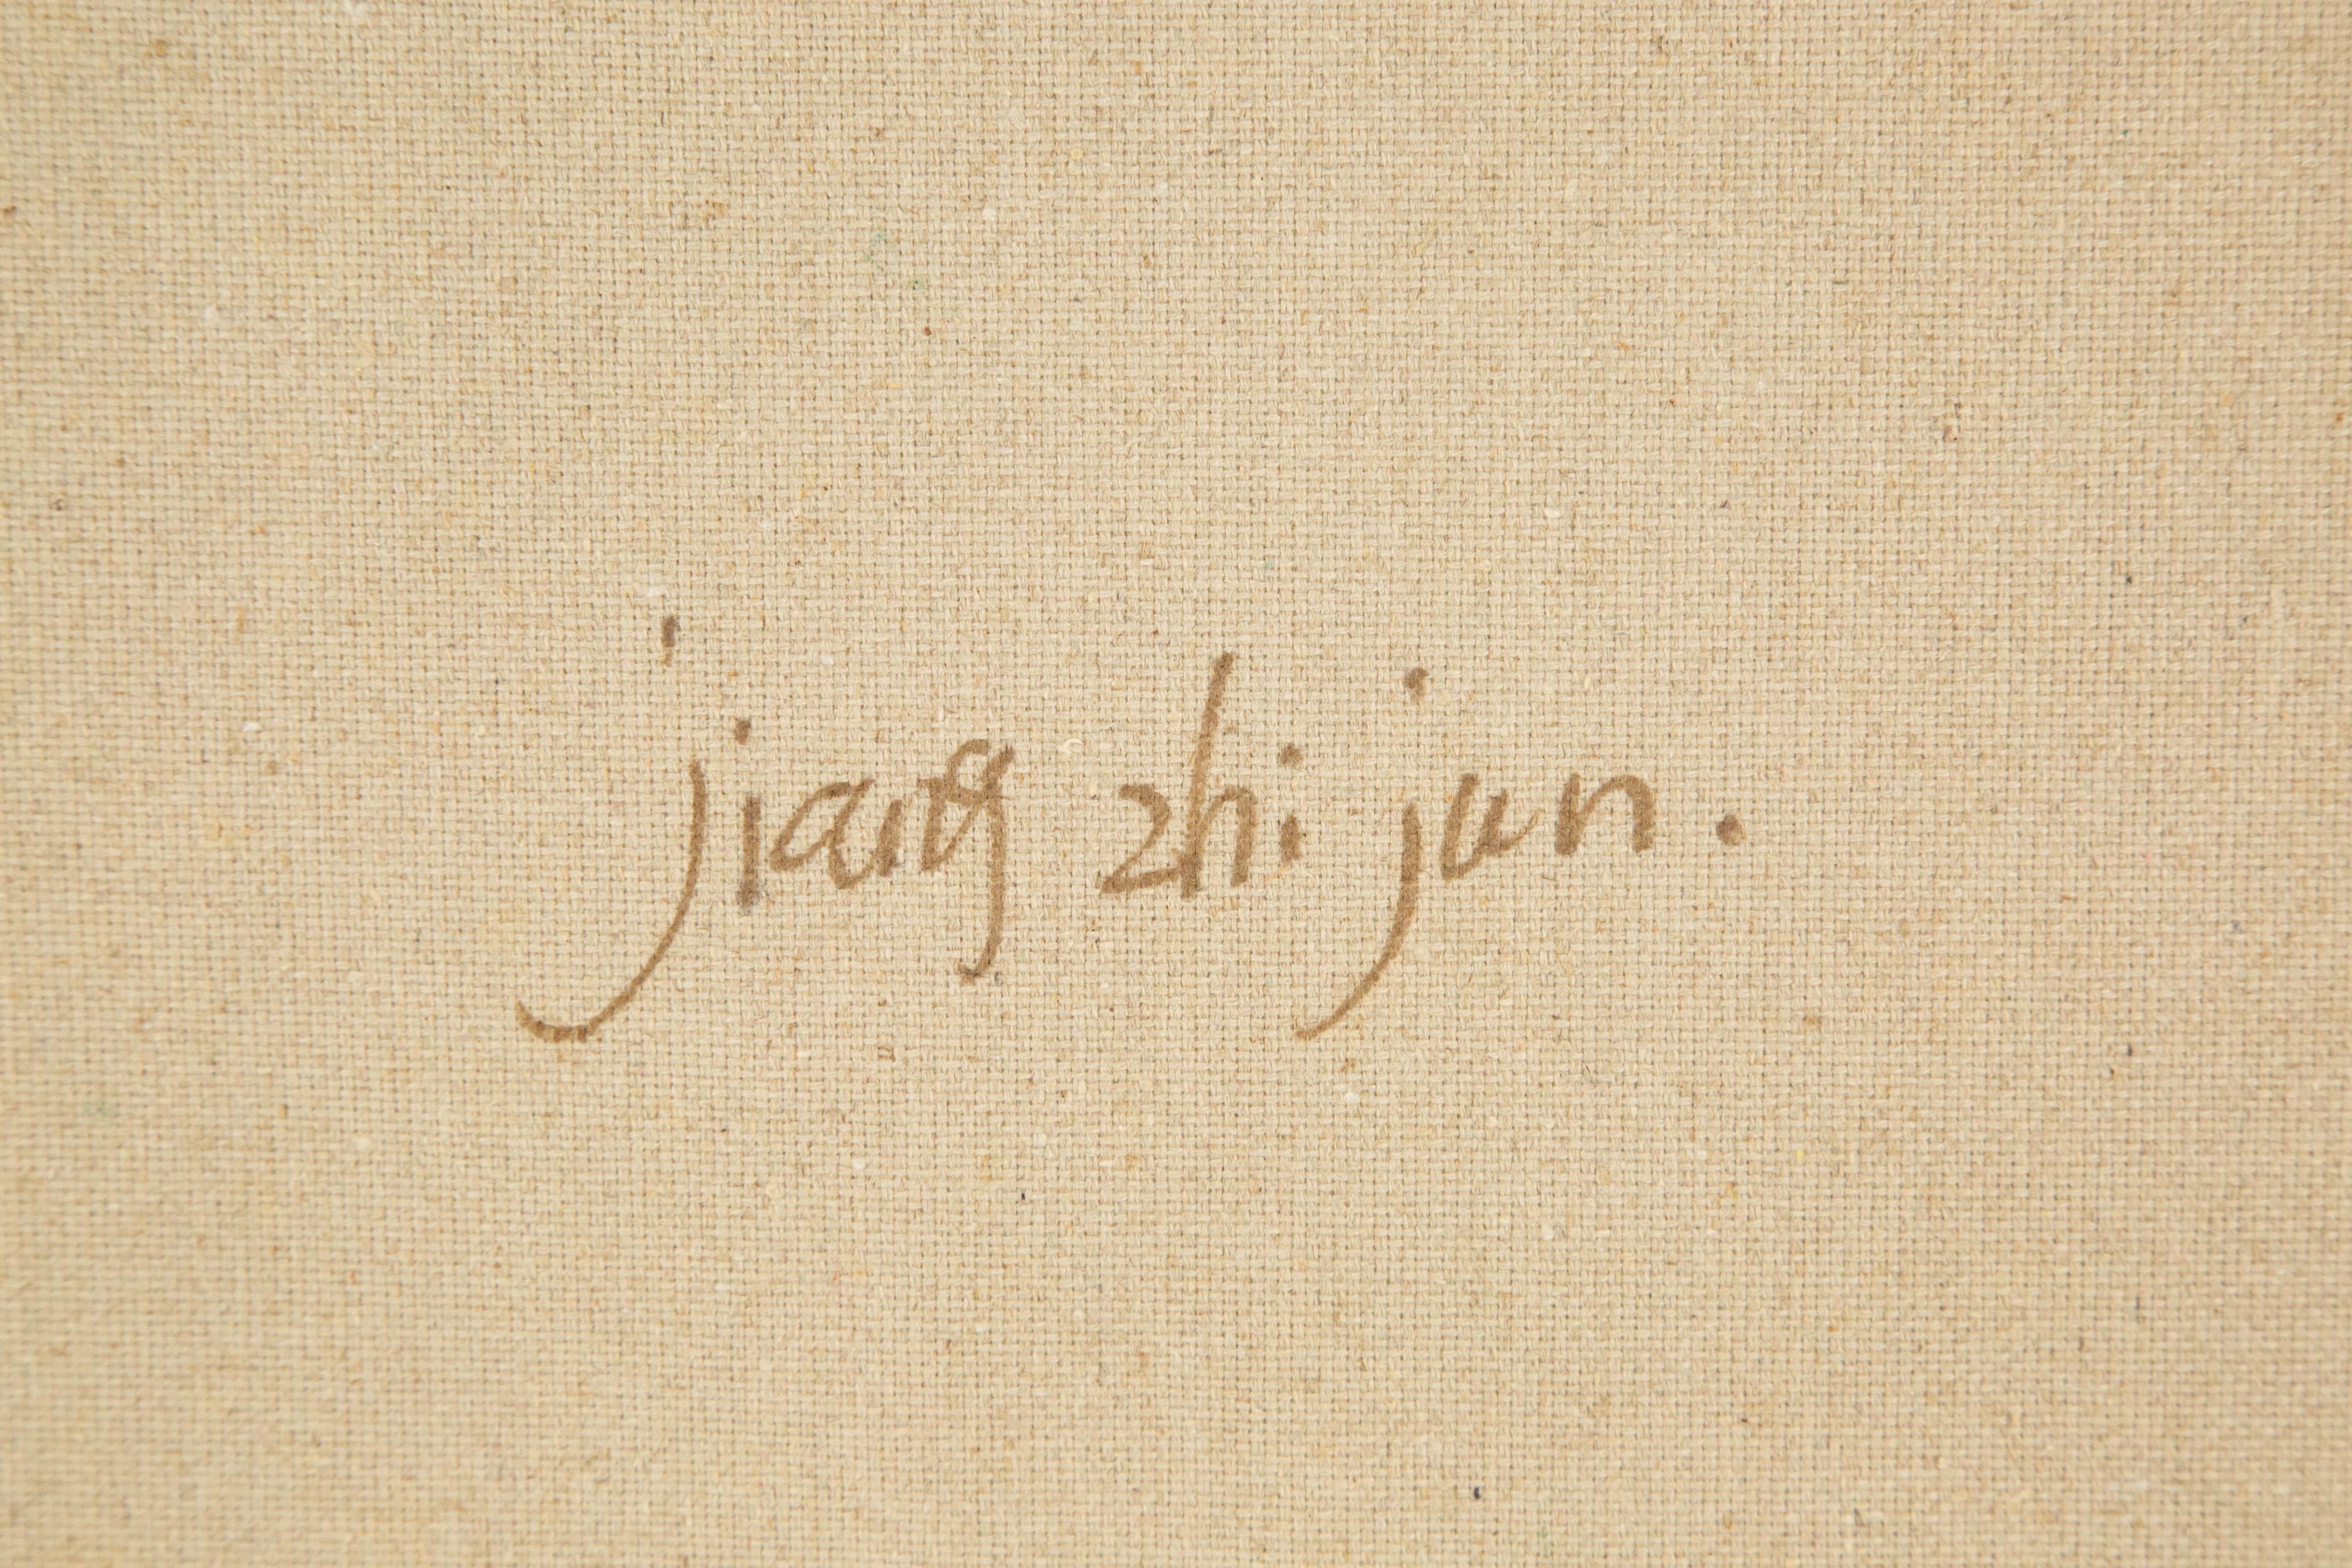 jiang zhi jun.